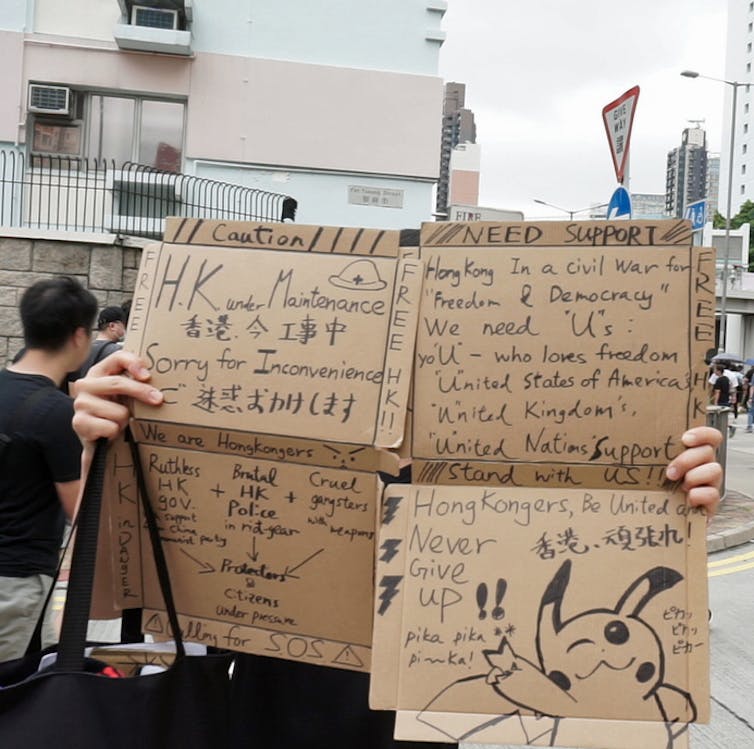 GIVE
WAY
讓
Yan Tsung Street
FIRE
Caution
FREE
H.K. under Maintenance
香港、今工事中
Sorry for Inconvenience
ご迷惑おかけします
FREE HK!!
NEED SUPPORT
Hong Kong In a civil War for
"Freedom & Democracy"
We need "U"s :
yo"U" - who loves freedom
"U"nited States of America's
"U"nited Kingdom's,
"U"nited Nations' Support
FREE HK
Stand with US!!
We are Hongkongers
HK in DANGER
Ruthless
HK
gov.
support
China
communist party
+
Brutal
HK
Police
in riot-gear
+
Cruel
gangsters
with weapons
Protectors
Citizens
under pressure
Calling for SOS
HongKongers, Be United and
Never
Give
up !!
香港、頑張れ
pika pika
pi~ka!
ピカッ
ピカッ
ピカー